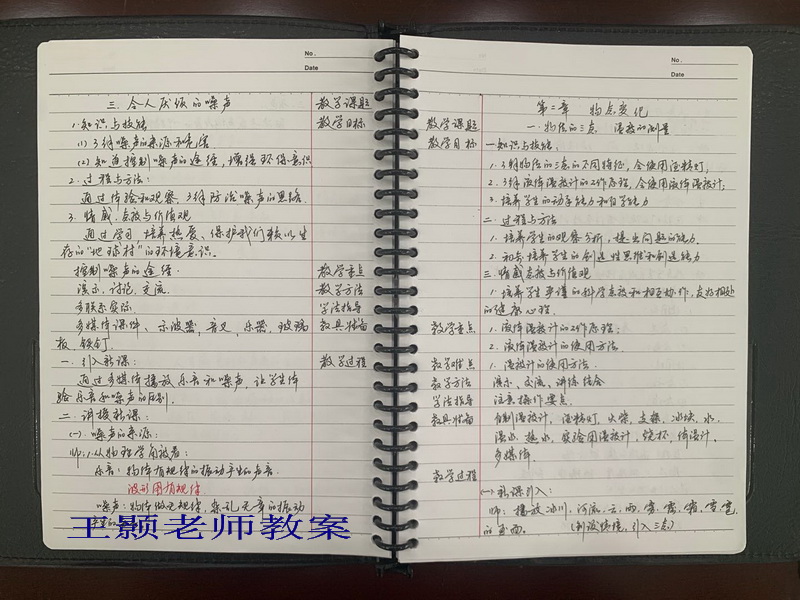 No.
Date
三. 令人厌烦的噪声 教学课题
1. 知识与技能 教学目标
(1) 了解噪声的来源和危害
(2) 知道控制噪声的途径，增强环保意识
2. 过程与方法：
通过体验和观察，了解防治噪声的思路.
3. 情感、态度与价值观
通过学习，培养热爱、保护我们赖以生
存的“地球村”的环境意识.
控制噪声的途径. 教学重点
演示、讨论、交流. 教学方法
多联系实际 学法指导
多媒体课件、示波器、音叉、乐器、玻璃 教具准备
板、铁钉
一. 引入新课： 教学过程
通过多媒体播放乐音和噪声，让学生体
验乐音和噪声的区别.
二. 讲授新课：
(一). 噪声的来源：
师：1. 从物理学角度看：
乐音：物体有规律的振动产生的声音.
波形图有规律
噪声：物体做无规律、杂乱无章的振动
王颖老师教案
No.
Date
第二章 物态变化
教学课题 一. 物质的三态 温度的测量
教学目标 一. 知识与技能：
1. 了解物质的三态的不同特征，会使用酒精灯；
2. 了解液体温度计的工作原理，会使用液体温度计；
3. 培养学生的动手能力和自学能力
二. 过程与方法
1. 培养学生的观察分析，提出问题的能力.
2. 初步培养学生的创造性思维和创造能力
三. 情感态度与价值观
1. 培养学生严谨的科学态度和相互协作，友好相处
的健康心理.
教学重点 1. 液体温度计的工作原理；
2. 液体温度计的使用方法.
教学难点 1. 温度计的使用方法.
教学方法 演示、交流、讲练结合
学法指导 注意操作要点.
教具准备 自制温度计，酒精灯，火柴，支架，冰块，水，
温水，热水，实验用温度计，烧杯，体温计，
多媒体.
教学过程
(一) 新课引入：
师：播放冰川，河流，云，雨，雾，露，霜，雪，雹
的画面. (创设情境，引入三态)